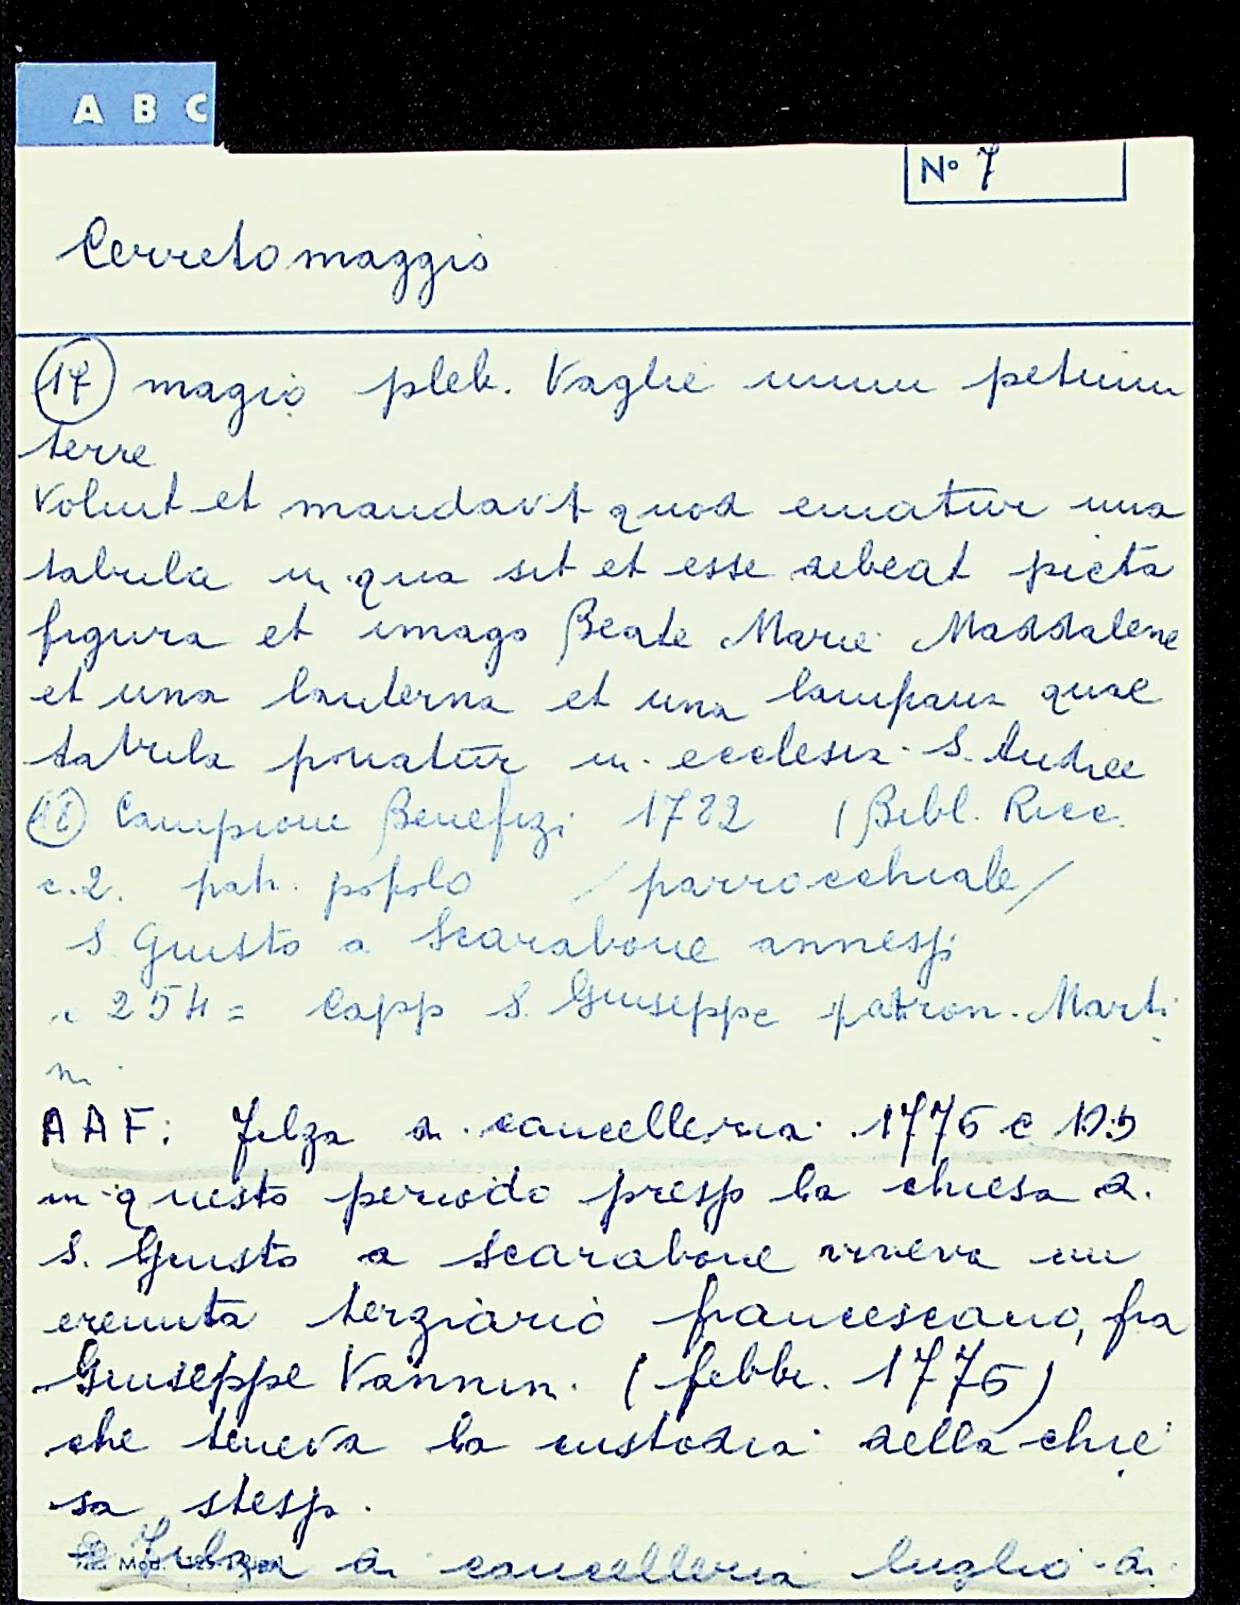 A B C
N° 7
Cerreto maggio
17 magio pleb. Vaglie unum petium
terre
Voluit et mandavit quod ematur una
tabula in qua sit et esse debeat picta
figura et imago Beate Marie Maddalene
et una lanterna et una lampana quae
tabula ponatur in ecclesia S. Andree
18 Campione Benefizi 1782 (Bibl. Ricc.
c. 2. patr. popolo /parrocchiale/
S. Giusto a Scarabone annesso
c 254 = Capp S. Giuseppe patron. Marti
ni
AAF: Filza di cancelleria 1776 c
in questo periodo presso la chiesa di
S. Giusto a Scarabone viveva un
eremita terziario francescano, fra
Giuseppe Vannini (febbr. 1776)
che teneva la custodia della chie
sa stessa.
Filza di cancelleria luglio di